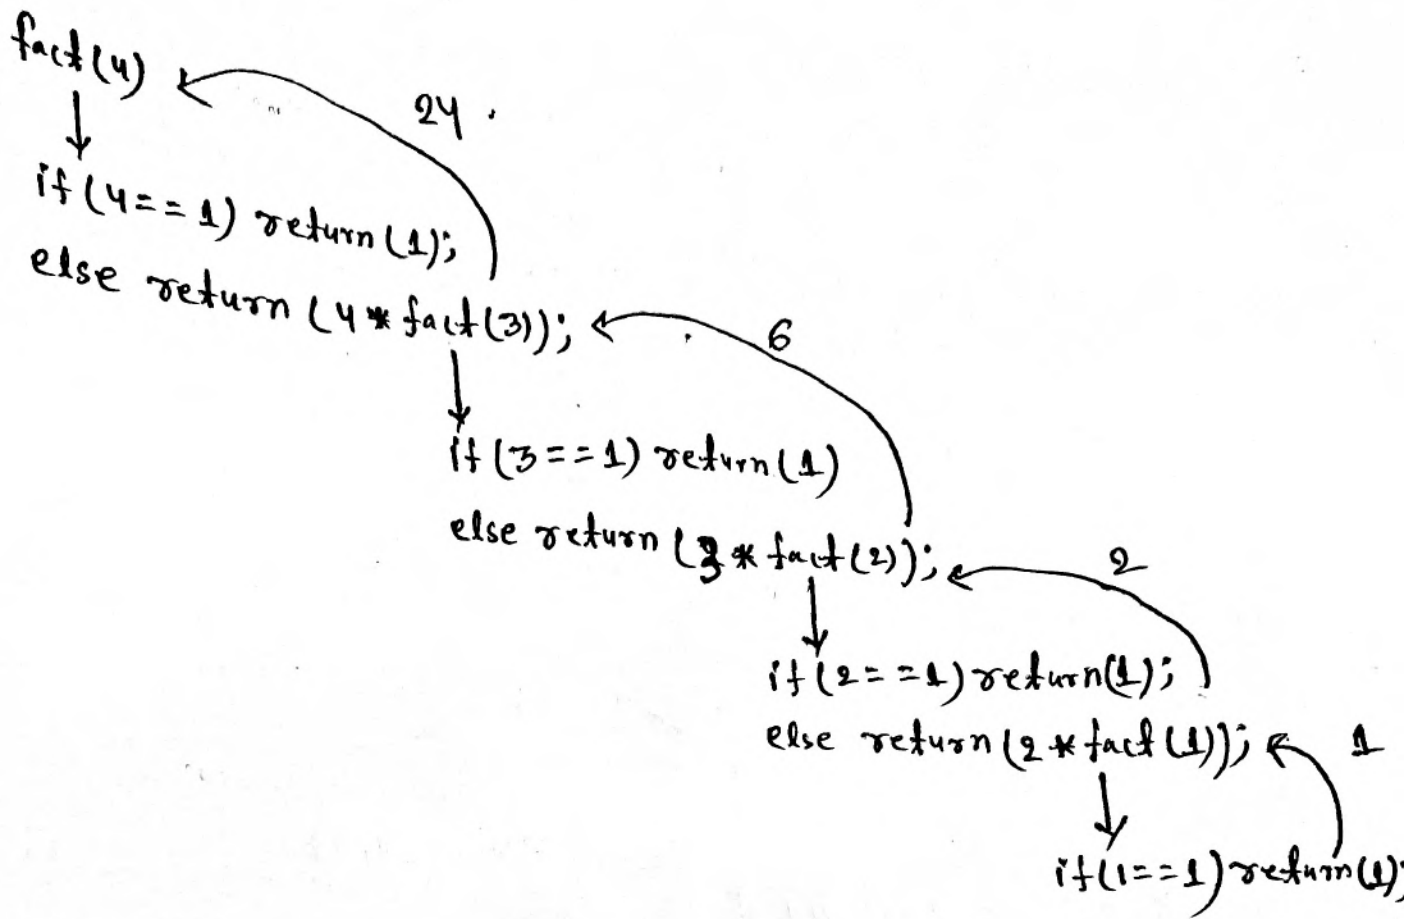 fact(4)
24
if(4==1) return(1);
else return(4*fact(3));
6
if(3==1) return(1)
else return(3*fact(2));
2
if(2==1)return(1);
else return(2*fact(1));
1
if(1==1)return(1);